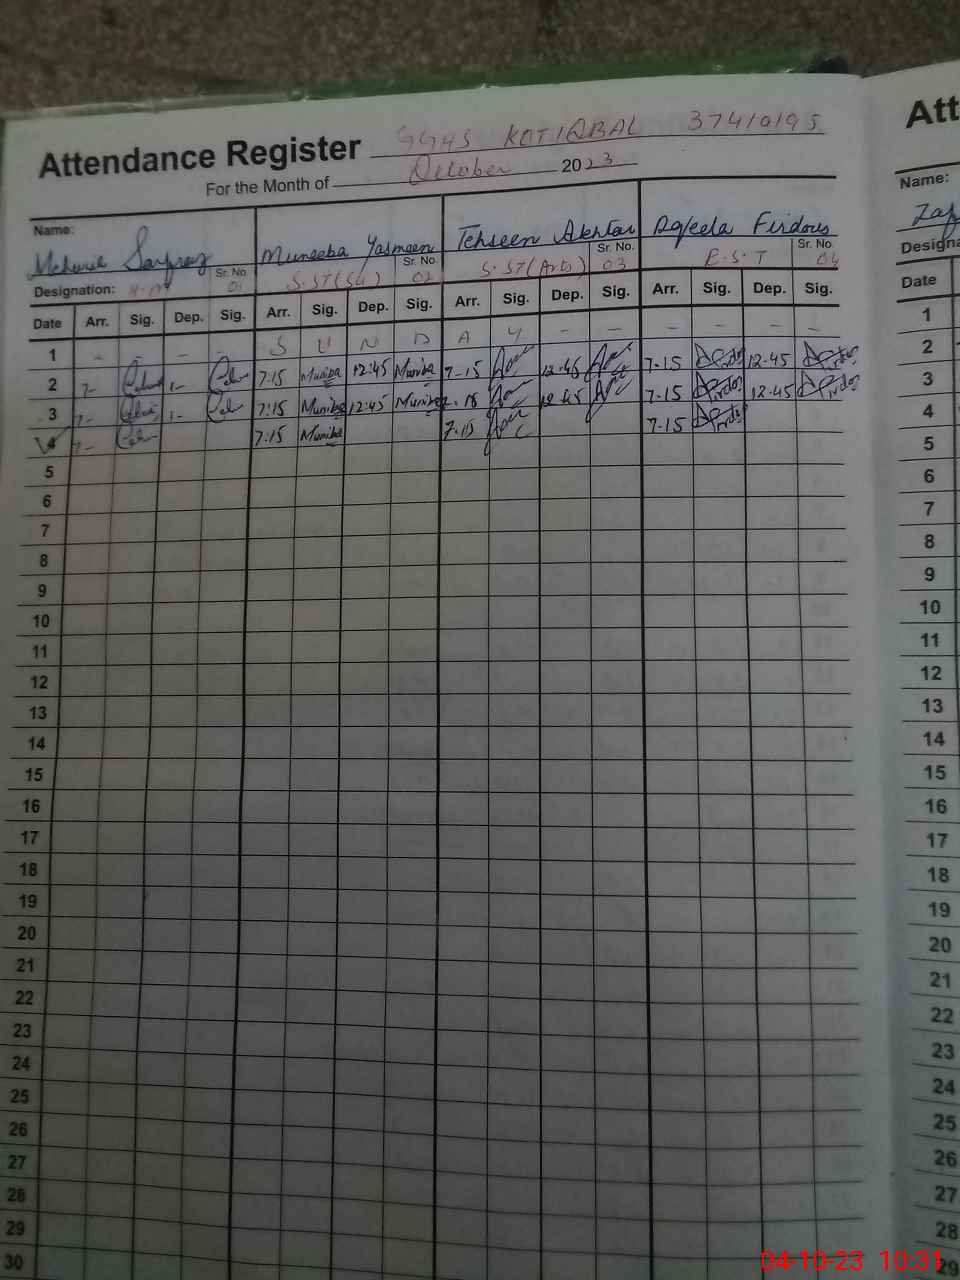 Attendance Register GGHS KOT IQBAL 37410195
For the Month of October 2023
Name:
Sarfraz Muneeba Yasmeen Tehseen Akhtar Aqleela Firdous
Designation: H.M Sr. No. 01 S.ST(Sci) Sr. No. 02 S.ST(Arts) Sr. No. 03 E.S.T Sr. No. 04
Date Arr. Sig. Dep. Sig. Arr. Sig. Dep. Sig. Arr. Sig. Dep. Sig. Arr. Sig. Dep. Sig.
1 - - - - S U N D A Y - - - - - -
2 7- 1- 7:15 Muniba 12:45 Muniba 7-15 12.45 7-15 Firdos 12.45 Firdos
3 7- 1- 7:15 Muniba 12:45 Muniba 7.15 12.45 7-15 Firdos 12.45 Firdos
4 7- 7:15 Muniba 7.15 7-15 Firdos
5
6
7
8
9
10
11
12
13
14
15
16
17
18
19
20
21
22
23
24
25
26
27
28
29
30
Att
Name:
Zaf
Designa
Date
1
2
3
4
5
6
7
8
9
10
11
12
13
14
15
16
17
18
19
20
21
22
23
24
25
26
27
28
29
04-10-23 10:31